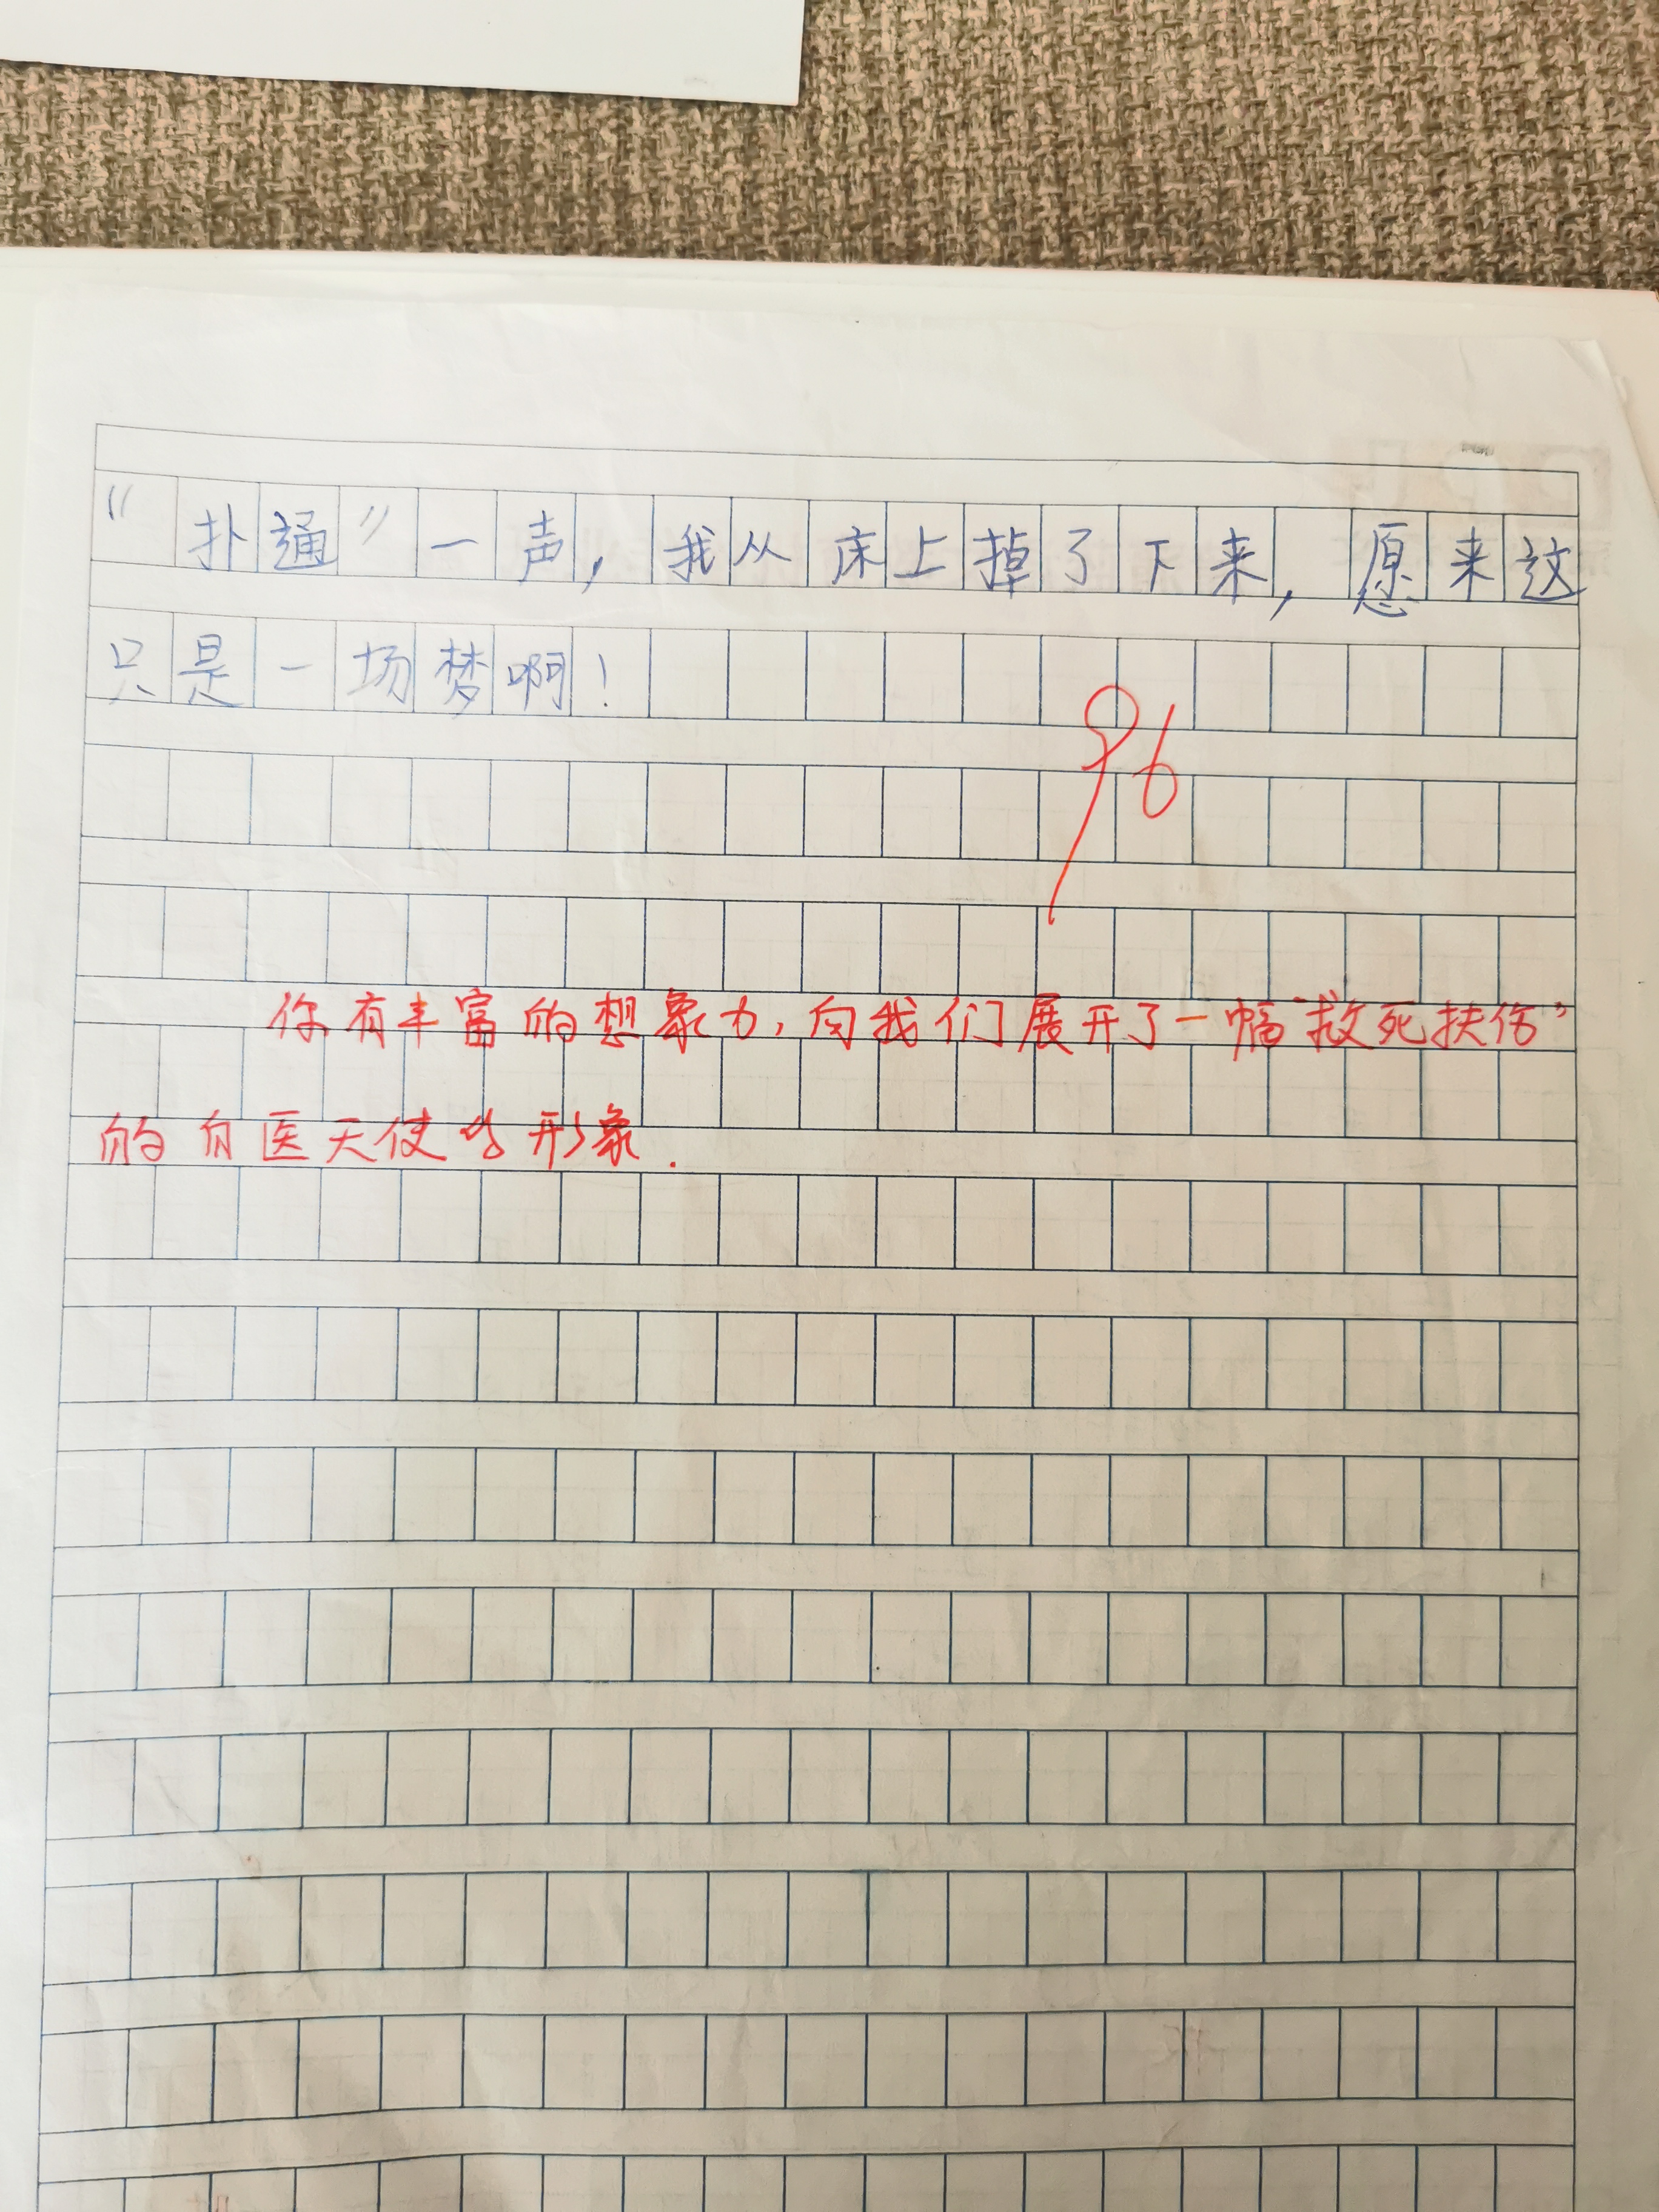 “扑通”一声，我从床上掉了下来，愿来这
只是一场梦啊！
96
你有丰富的想象力，向我们展开了一幅“救死扶伤”
的白医天使的形象.